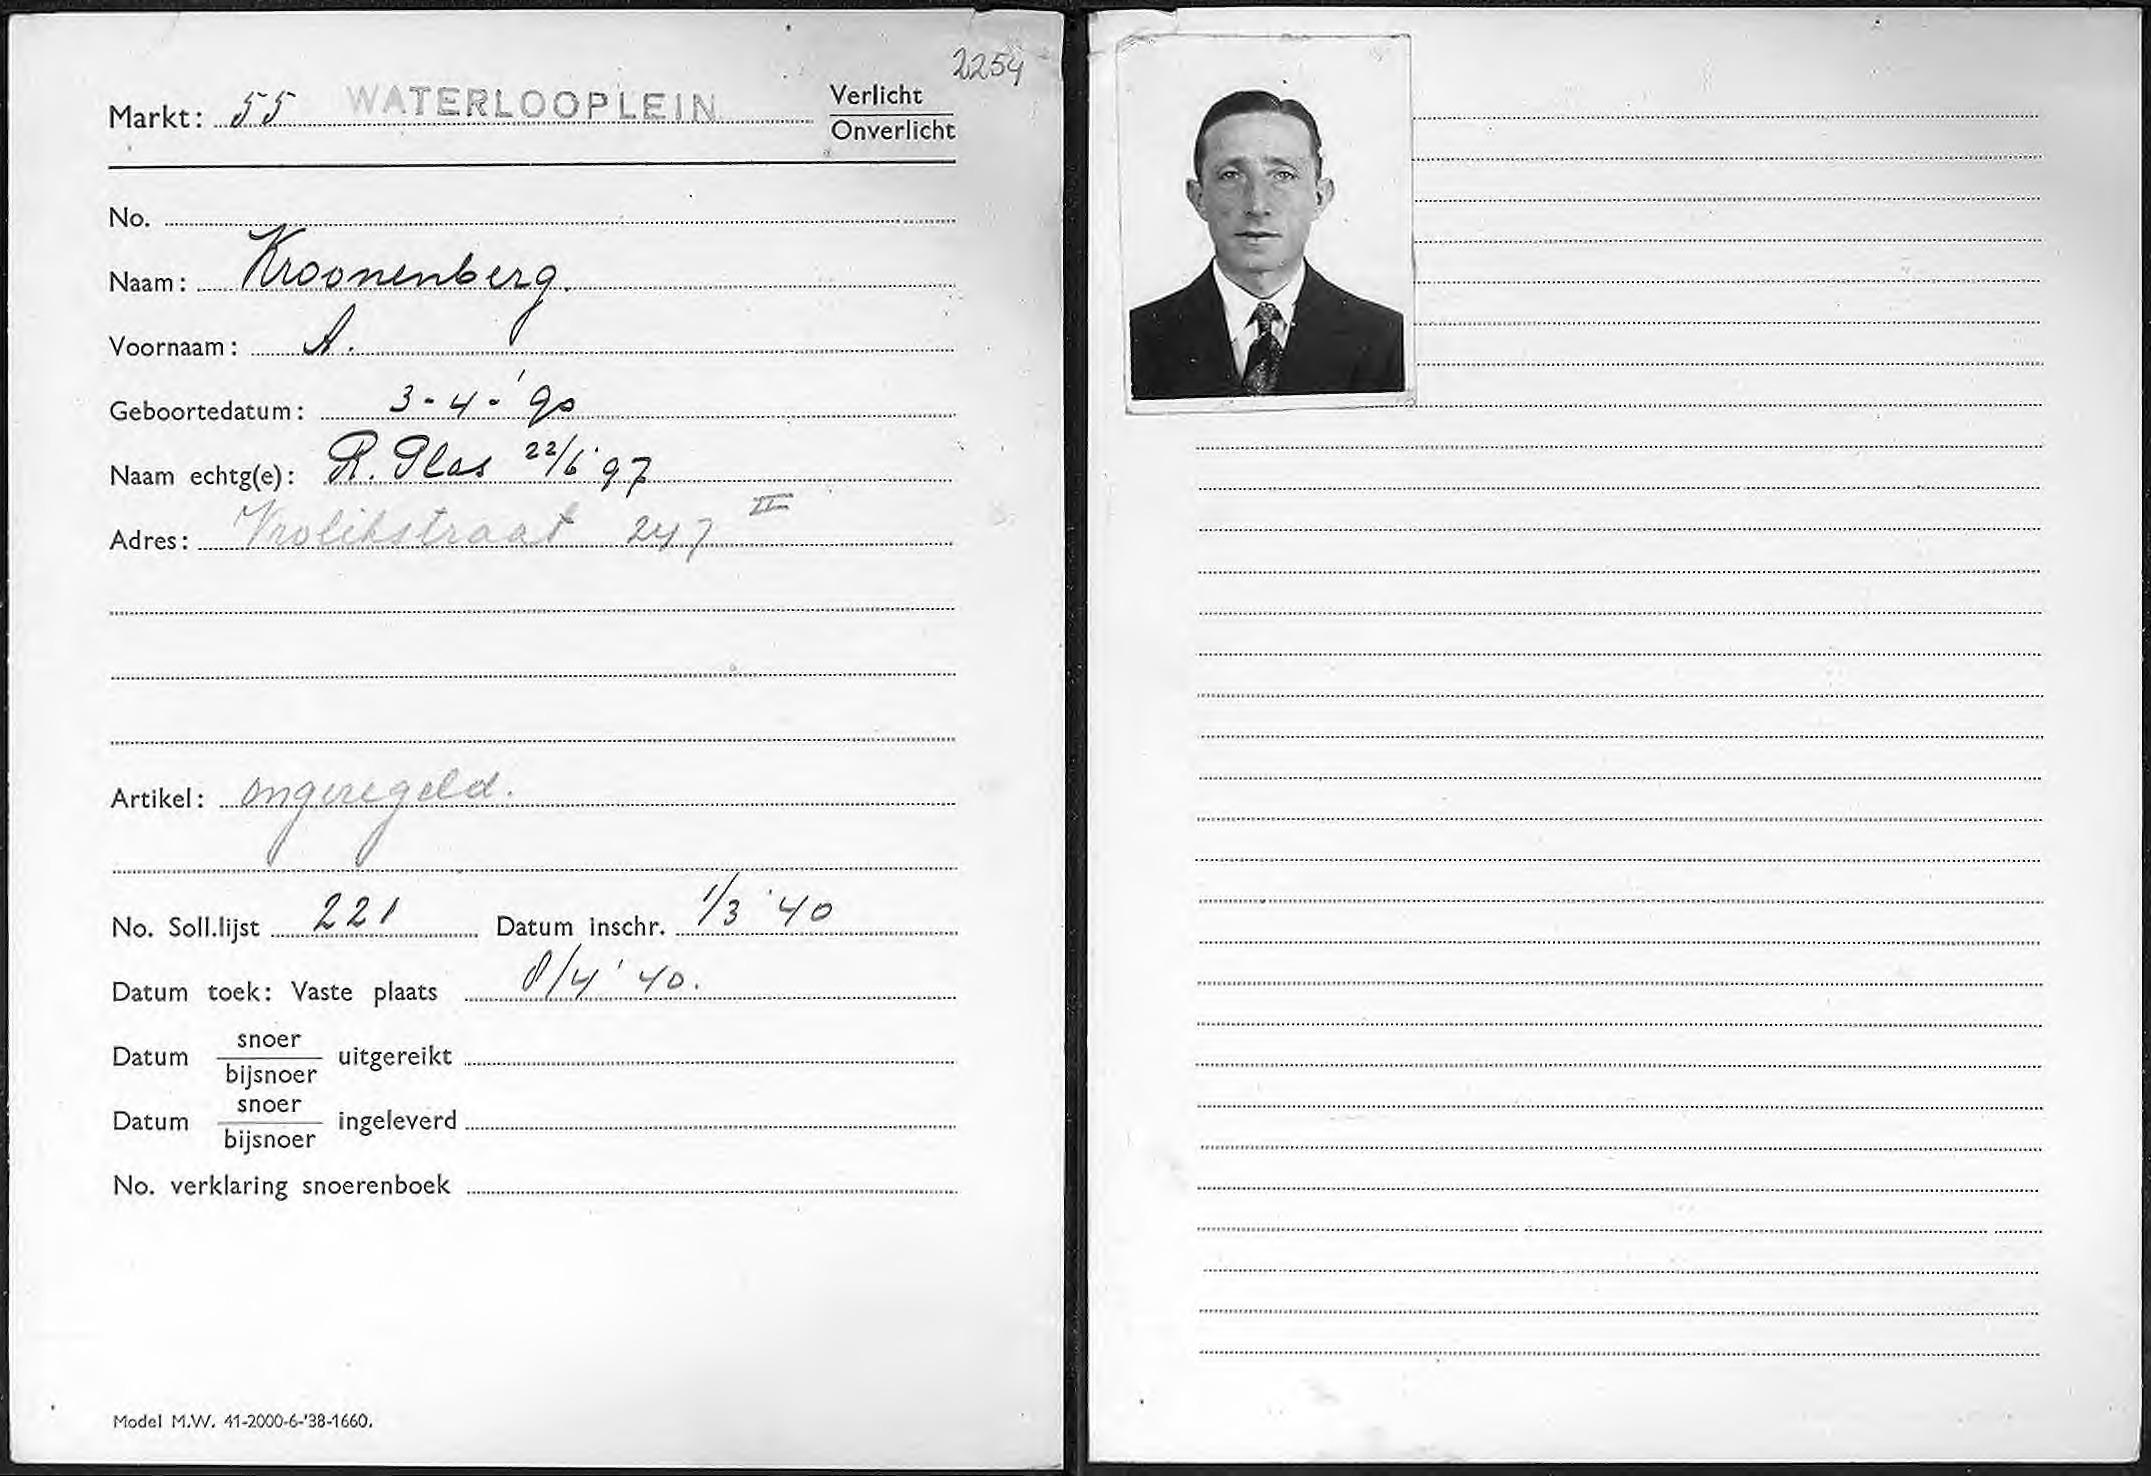 2254
Markt: 55 WATERLOOPLEIN Verlicht
Onverlicht
No.
Naam: Kroonenberg.
Voornaam: A.
Geboortedatum: 3-4-'90
Naam echtg(e): R. Glas 22/6'97
Adres: Vrolikstraat 247 II
Artikel: ongeregeld.
No. Soll.lijst 221 Datum inschr. 1/3 '40
Datum toek: Vaste plaats 8/4 '40.
Datum snoer/bijsnoer uitgereikt
Datum snoer/bijsnoer ingeleverd
No. verklaring snoerenboek
Model M.W. 41-2000-6-'38-1660.